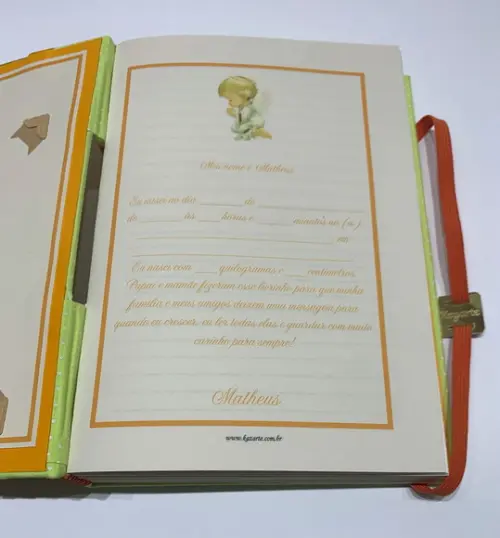 Meu nome é Matheus
Eu nasci no dia ______ de ______________
de ______ às ____ horas e ______ minutos no (a)
______________________________ em
______________________________
Eu nasci com ____ quilogramas e ____ centímetros.
Papai e mamãe fizeram esse livrinho para que minha
família e meus amigos deixem uma mensagem para
quando eu crescer, eu ler todas elas e guardar com muito
carinho para sempre!
Matheus
www.kgzarte.com.br